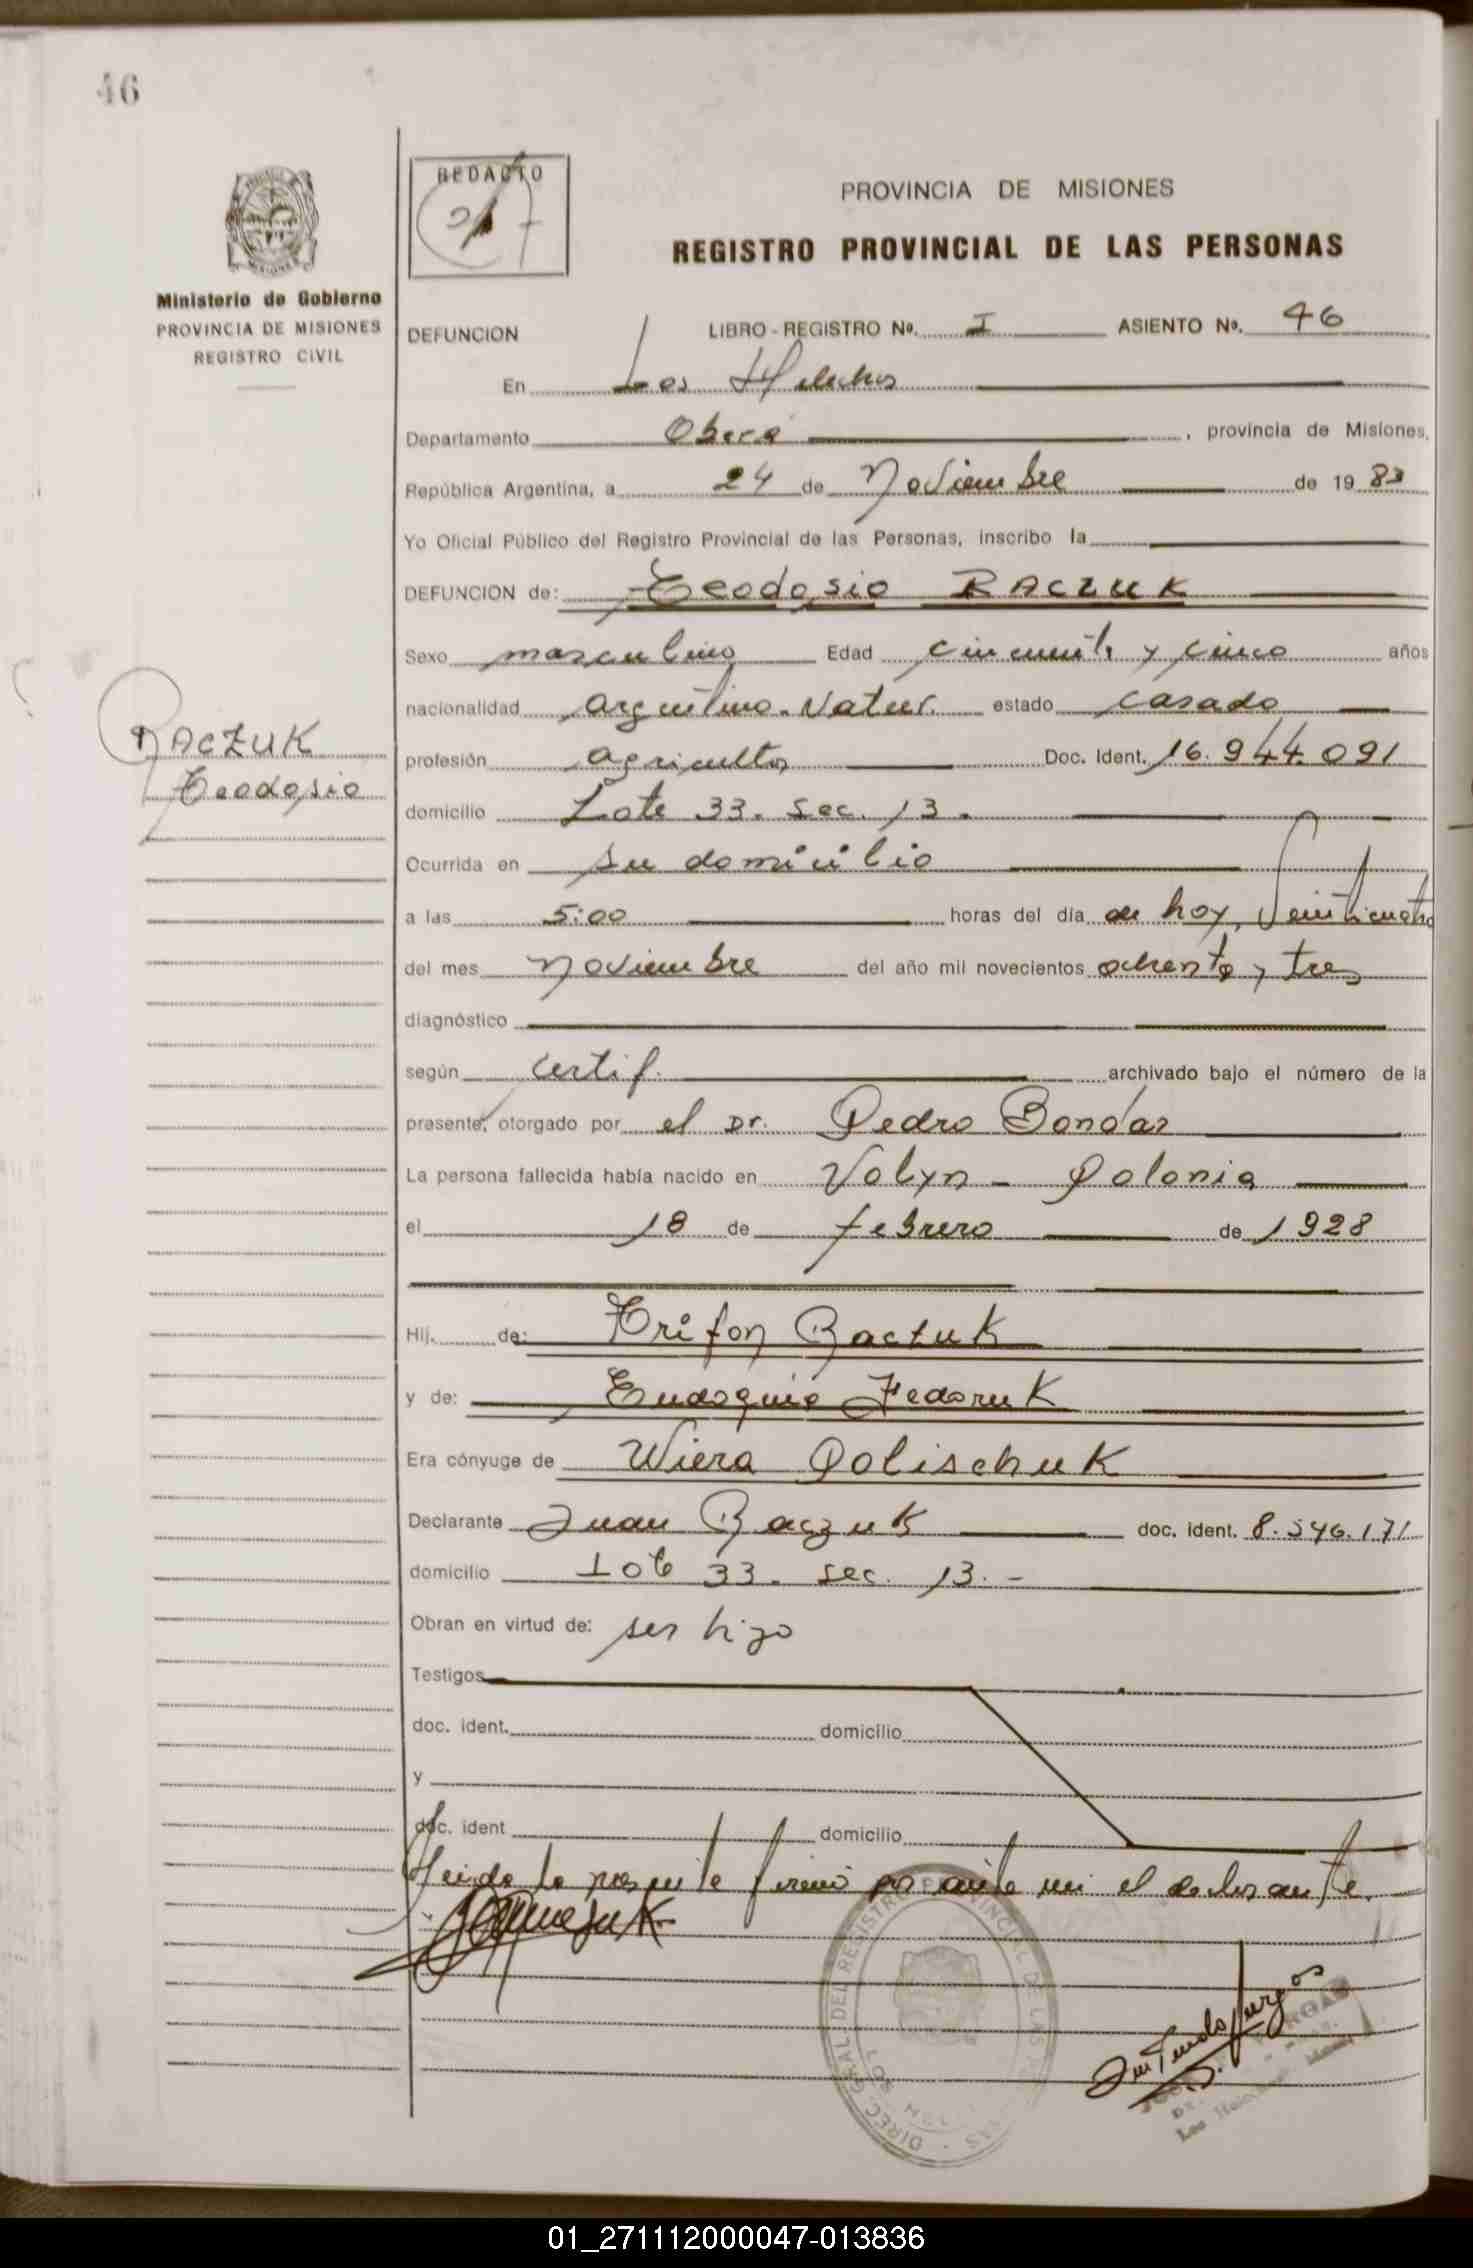 46
Ministerio de Gobierno
PROVINCIA DE MISIONES
REGISTRO CIVIL
REDACTO
PROVINCIA DE MISIONES
REGISTRO PROVINCIAL DE LAS PERSONAS
DEFUNCION LIBRO - REGISTRO Nº. I ASIENTO Nº. 46
En Los Helechos
Departamento Oberá , provincia de Misiones,
República Argentina, a 24 de Noviembre de 1983
Yo Oficial Público del Registro Provincial de las Personas, inscribo la
DEFUNCION de: Teodosio RACZUK
Sexo masculino Edad cincuenta y cinco años
nacionalidad argentino. Natur. estado casado
RACZUK
Teodosio
profesión agricultor Doc. Ident. 16.944.091
domicilio Lote 33. sec. 13.
Ocurrida en su domicilio
a las 5:00 horas del día de hoy, veinticuatro
del mes noviembre del año mil novecientos ochenta y tres
diagnóstico
según certif. archivado bajo el número de la
presente, otorgado por el Dr. Pedro Bondar
La persona fallecida había nacido en Volyn - Polonia
el 18 de febrero de 1928
Hij. de: Trifon Raczuk
y de: Eudoquia Fedoruk
Era cónyuge de Wiera Polischuk
Declarante Juan Raczuk doc. ident. 8.546.171
domicilio Lote 33. sec. 13.-
Obran en virtud de: ser hijo
Testigos
doc. ident. domicilio
y
doc. ident domicilio
Leida la presente firmó por ante mi el declarante.
DIREC. GRAL. DEL REGISTRO PROVINCIAL DE LAS
01_271112000047-013836